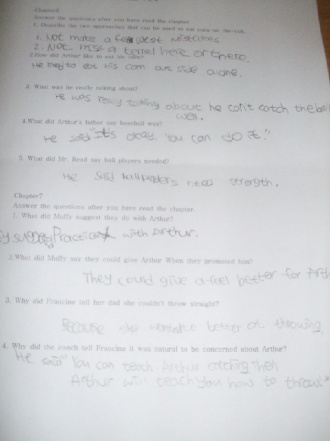 Chapter6
Answer the questions after you have read the chapter.
1. Describe the two approaches that can be used to eat corn on the cob.
1. Not make a few mistakes
2. Not miss a kernel here or there.
2.How did Arthur like to eat his corn?
He to eat his corn out side alone.
3. What was he really talking about?
He was really talking about he con't catch the ball
well.
4.What did Arthur's father say baseball was?
He said "It's okay. You can do it."
5. What did Mr. Read say ball players needed?
He said ballplayers need strength.
Chapter7
Answer the questions after you have read the chapter.
1. What did Muffy suggest they do with Arthur?
suggest Practice with Arthur.
2.What did Muffy say they could give Arthur When they promised him?
They could give a feel better for Arth
3. Why did Francine tell her dad she couldn't throw straight?
Because she better at throwing.
4. Why did the coach tell Francine it was natural to be concerned about Arthur?
He said "You can teach Arthur catching then
Arthur will teach you how to throw"